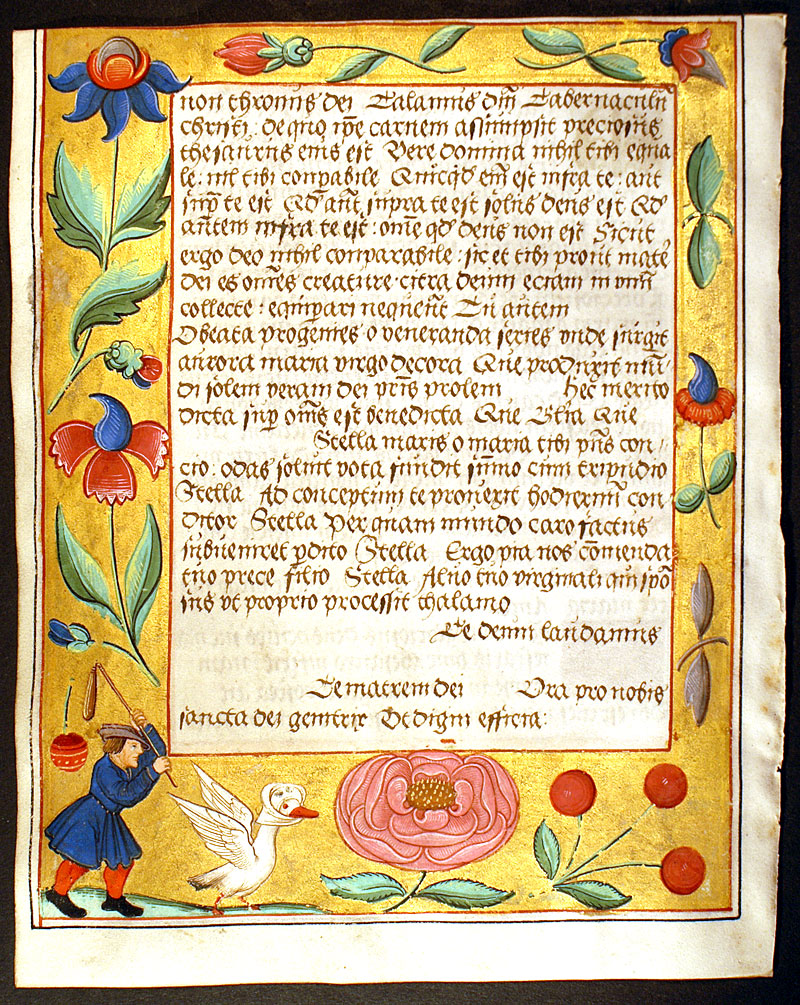 non thronus dei Talamus dñi Tabernaculũ
christi: de quo ip̃e carnem assumpsit preciosus
thesaurus eius est Vere domina nihil tibi equa
le: nil tibi conpabile Quicq̃d em̃ est infra te: aut
sup̃ te est Q̃d aũt supra te est solus deus est Q̃d
autem infra te est: om̃e q̃d deus non est Sicut
ergo deo nihil conparabile: sic et tibi prout mate
dei es om̃es creature citra deum eciam in unũ
collecte: equipari nequeũt Tu autem
O beata progenies o veneranda series unde surgit
aurora maria virgo decora Que produxit mũ
di solem veram dei pr̃is prolem hec̃ merito
dicta sup̃ om̃s est benedicta Que Glia Que
Stella maris o maria tibi pñs con
cio: odas soluit vota fundit sũmo cum tripudio
Stella Ad conceptum te prouexit hodiernũ con
ditor Stella Per quam mundo caro factus
subueniret p̃dito Stella Ergo pia nos cõmenda
tuo prece filio Stella Aluo tuo virginali qui ip̃o
ius ut proprio processit thalamo
Te deum laudamus
Te matrem dei Ora pro nobis
sancta dei genitrix Ut digni efficia: